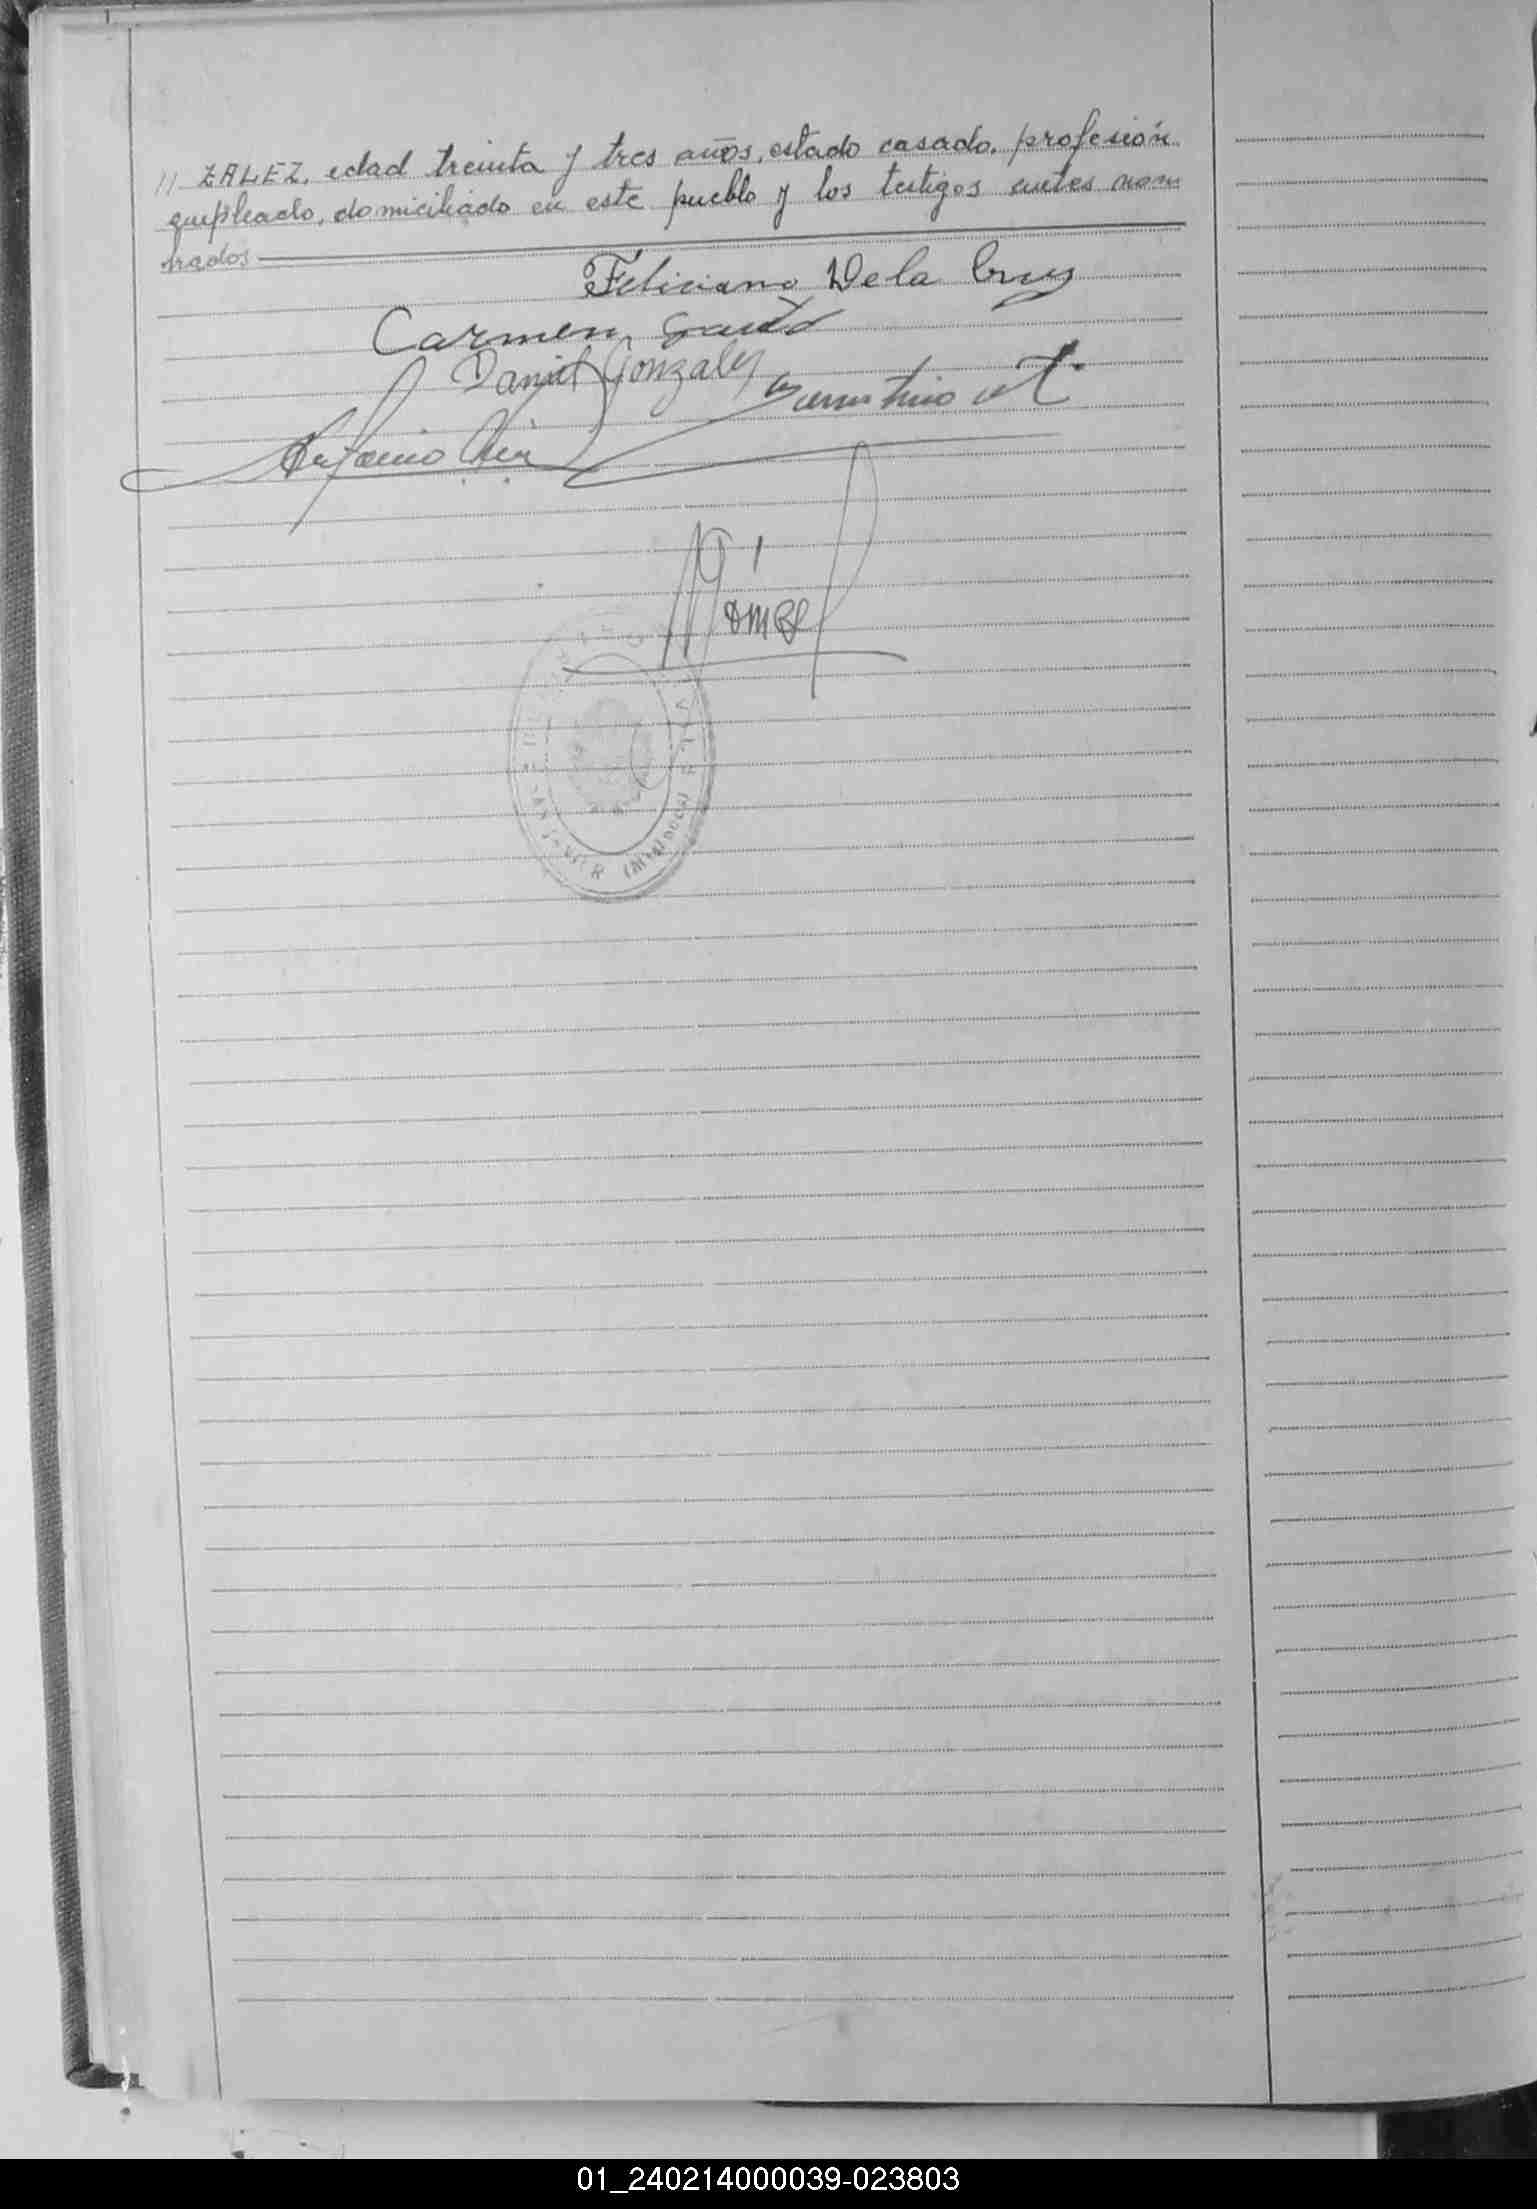 // ZALEZ, edad treinta y tres años, estado casado, profesión
empleado, domiciliado en este pueblo y los testigos antes nom
brados
Feliciano De la Cruz
Carmen
Daniel Gonzalez
Antonio
(Misiones)
01_240214000039-023803